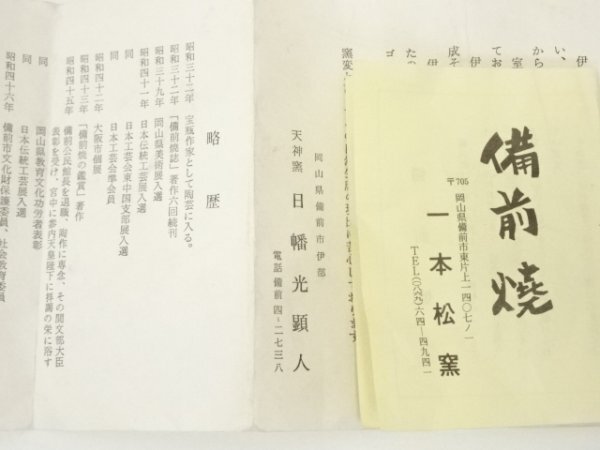 備前燒
〒705 岡山県備前市東片上一四〇七ノ一
一本松窯
TEL(〇八六九)六四-四九四一
伊
い、
室
から
てお
伊
成そ
伊
たの
ゴ
窯変
岡山県備前市伊部
天神窯 日幡光顕人
電話備前四-二七三八
略歴
昭和三十二年 宝瓶作家として陶芸に入る。
昭和三十二年 「備前焼誌」著作六回続刊
昭和三十九年 岡山県美術展入選
昭和四十一年 日本伝統工芸展入選
同 日本工芸会東中国支部展入選
同 日本工芸会準会員
昭和四十二年 大阪市個展
昭和四十三年 「備前焼の鑑賞」著作
昭和四十五年 備前公民館長を退職、陶作に専念、その間文部大臣
表彰を受け、宮中に参内天皇陛下に拝謁の栄に浴す
同 岡山県教育文化功労者表彰
同 日本伝統工芸展入選
昭和四十六年 備前市文化財保護委員、社会教育委員